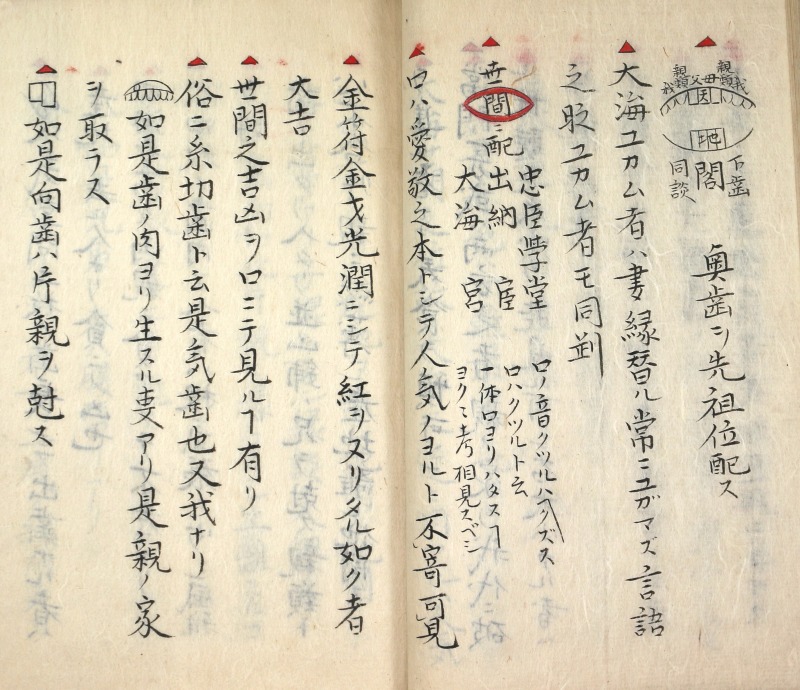 親類 父母 親類
我 我
因
地
閣
下歯
同談
奥歯ヲ先祖位配ス
大海ユカム者ハ妻縁替ル常ニユガマズ言語
之時ユカム者モ同判
世間ニ配
忠臣学堂
出納 官
大海 宮
口ノ音クツルハクズス
口ハクツルト云
一体口ヨリハタスヿ
ヨク〻考相見スベシ
口ハ愛敬之本トシテ人気ノヨルト不寄可見
金符金戈光潤ニシテ紅ヲヌリタル如ク者
大吉
世間之吉凶ヲ口ニテ見ルヿ有リ
俗ニ糸切歯ト云是気歯也又我ナリ
如是歯ノ肉ヨリ生スル事アリ是親ノ家
ヲ取ラス
如是向歯ハ片親ヲ尅ス